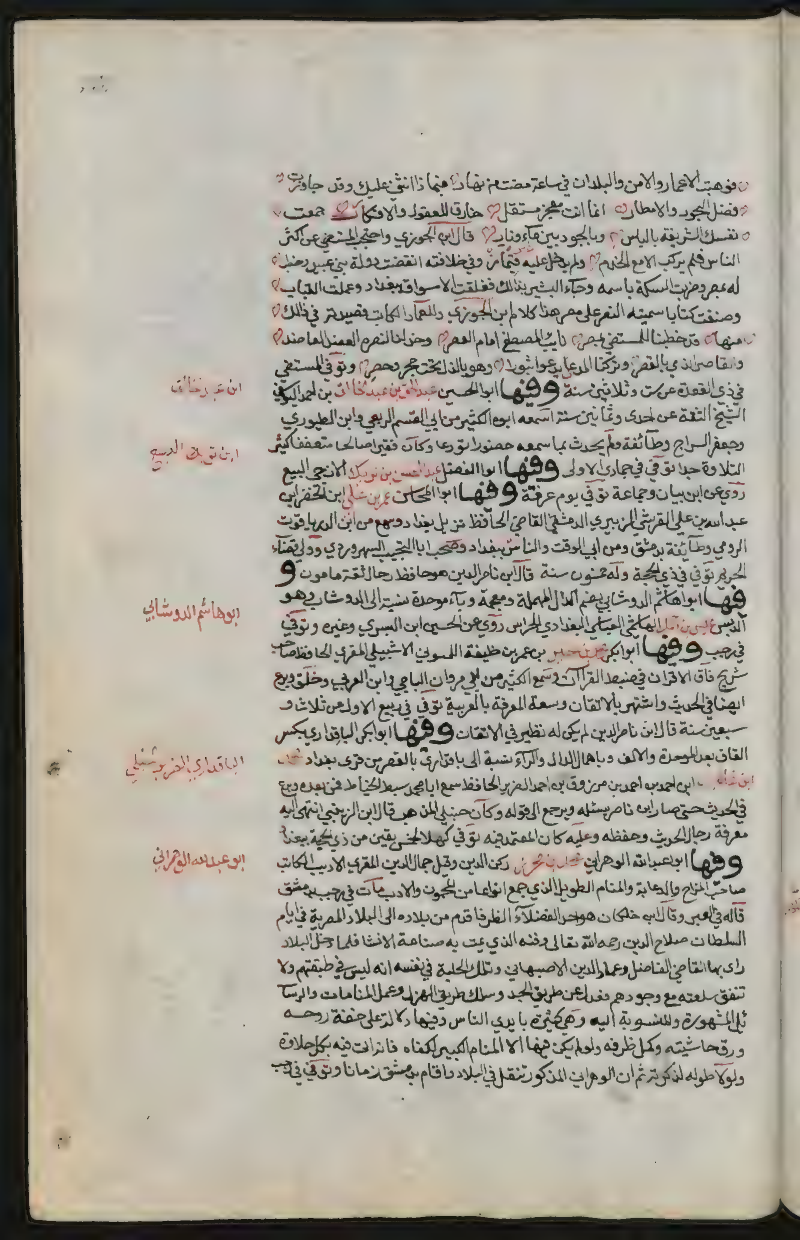 فوهبت الاعمار والامن والبلدان في ساعة مضت من نهار فبماذا اثني عليك وقد جاوزت
فضل البحور والامطار انما انت معجز مستقل خارق للعقول والافكار جمعت
نفسك الشريفة بالباس وبالجود بين ماء ونار قال ابن الجوزي واحتجب المستضي عن اكثر
الناس فلم يركب الا مع الخدم ولم يدخل عليه قيماز وفي خلافته انقضت دولة بني عبيد وخطب
له بمصر وضربت السكة باسمه وجاء البشير بذلك فغلقت الاسواق ببغداد وعملت القباب
وصنفت كتابا سميته النصر على مصر هذا كلام ابن الجوزي وللعماد الكاتب قصيدة في ذلك
منها قد خطبنا للمستضي بمصر نايب المصطفى امام العصر وخذلنا لنصره العضد العاضد
والقاصر الذي بالقصر وتركنا الدعي يدعو ثبورا وهو بالذل تحت حجر وحصر وتوفي المستضي
في ذي القعدة عن ست وثلاثين سنة وفيها ابو الحسين عبد الحق بن عبد الخالق بن احمد اليوسفي
الشيخ الثقة عن احدى وثمانين سنة اسمعه ابوه الكثير من ابي القسم الربعي وابن الطيوري
وجعفر السراج وطائفة ولم يحدث بما سمعه حضورا تورعا وكان فقيرا صالحا متعففا كثير
التلاوة جدا توفي في جمادى الاولى وفيها ابو الفضل عبد المحسن بن تريك الازجي البيع
روى عن ابن بيان وجماعة توفي يوم عرفة وفيها ابو المحاسن عمر بن علي ابن الخضر ابن
عبد الله بن علي القرشي الزبيري الدمشقي القاضي الحافظ نزيل بغداد وسمع من ابن الدرياقوت
الرومي وطائفة بدمشق ومن ابي الوقت والناس ببغداد وصحب ابا النجيب السهروردي وولي قضاء
الحريم توفي في ذي الحجة وله خمسون سنة قال ابن ناصر الدين هو حافظ رحال ثقة مامون و
فيها ابو هاشم الدوشابي بضم الدال المهملة ومعجمة وباء موحدة نسبة الى الدوشاب وهو
الدبس عيسى بن احمد الهاشمي العباسي البغدادي الهراس روى عن الحسين ابن البسري وغيره وتوفي
في رجب وفيها ابو بكر محمد بن خير بن عمر بن خليفة اللمتوني الاشبيلي المقري الحافظ صاحب
شريح فاق الاقران في ضبط القراآت وسمع الكثير من ابي مروان الباجي وابن العربي وخلق وبرع
ايضا في الحديث واشتهر بالاتقان وسعة المعرفة بالعربية توفي في ربيع الاول عن ثلاث و
سبعين سنة قال ابن ناصر الدين لم يكن له نظير في الاتقان وفيها ابو بكر الباقداري بكسر
القاف بعد الموحدة والالف وباهمال الدال والراء نسبة الى باقدارى بالقصر من قرى بغداد محمد
ابن احمد بن احمد بن مرزوق بن احمد الضرير الحافظ سمع ابا محمد سبط الخياط فمن بعده وبرع
في الحديث حتى صار ابن ناصر يسئله ويرجع الى قوله وكان حنبلي المذهب قال ابن الزغبي انتهى اليه
معرفة رجال الحديث وحفظه وعليه كان المعتمد فيه توفي كهلا لخمس بقين من ذي الحجة ببغداد
وفيها ابو عبد الله الوهراني محمد بن محرز ركن الدين وقيل جمال الدين المقري الاديب الكاتب
صاحب المزاح والدعابة والمنام الطويل الذي جمع انواعا من المجون والادب مات في رجب بدمشق
قاله في العبر وقال ابن خلكان هو احد الفضلاء الظرفا قدم من بلاده الى البلاد المصرية في ايام
السلطان صلاح الدين رحمه الله تعالى وفنه الذي يمت به صناعة الانشا فلما دخل البلاد
راى بها القاضي الفاضل وعماد الدين الاصبهاني وتلك الحلبة في نفسه انه ليس في طبقتهم ولا
تنفق سلعته مع وجودهم فعدل عن طريق الجد وسلك طريق الهزل وعمل المنامات والرسا
ئل المشهورة والمنسوبة اليه وهي كثيرة بايدي الناس وفيها دلالة على خفة روحه
ورقة حاشيته وكمال ظرفه ولو لم يكن فيها الا المنام الكبير لكفاه فانه اتى فيه بكل حلاوة
ولولا طوله لذكرته ثم ان الوهراني المذكور تنقل في البلاد واقام بدمشق زمانا وتوفي في رجب
ابن عبد الخالق
ابن تريك البيع
ابو هاشم الدوشابي
الباقداري الضرير حنبلي
ابو عبد الله الوهراني